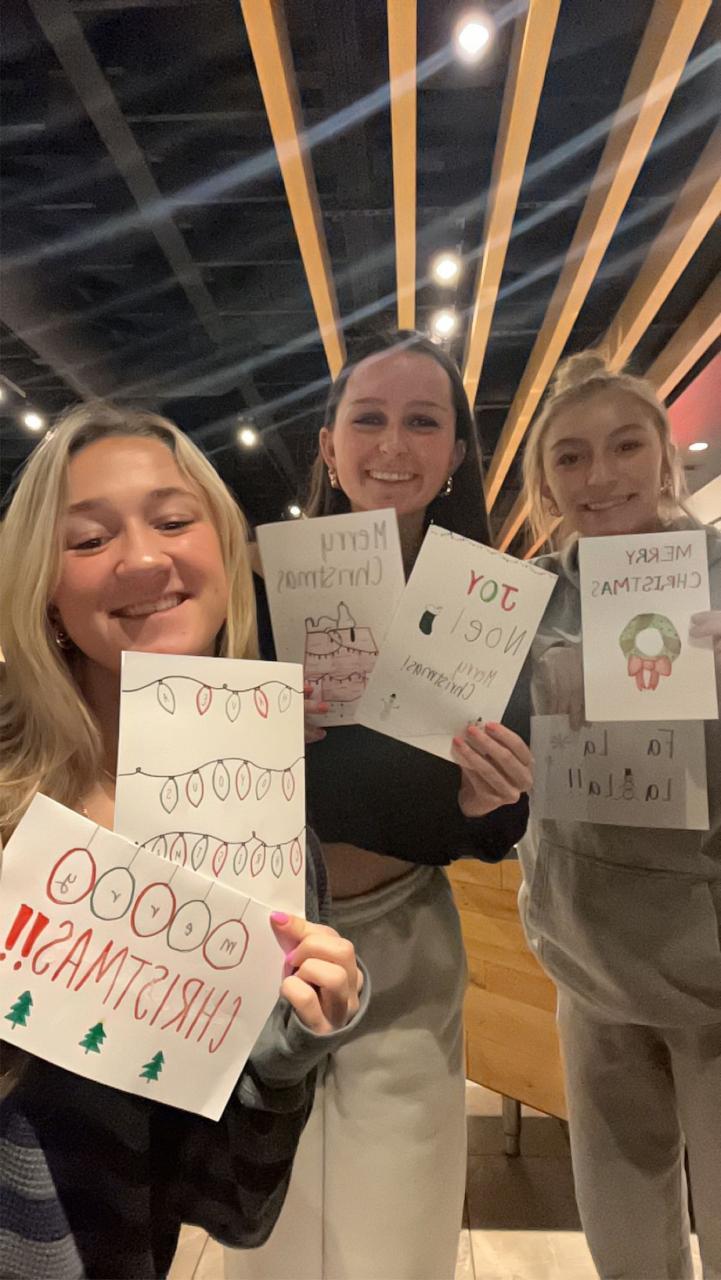 Merry
Christmas
JOY
Noel
Merry
Christmas!
MERRY
CHRISTMAS
Fa La
La La!!
JOYOUS
merry
CHRISTMAS!!